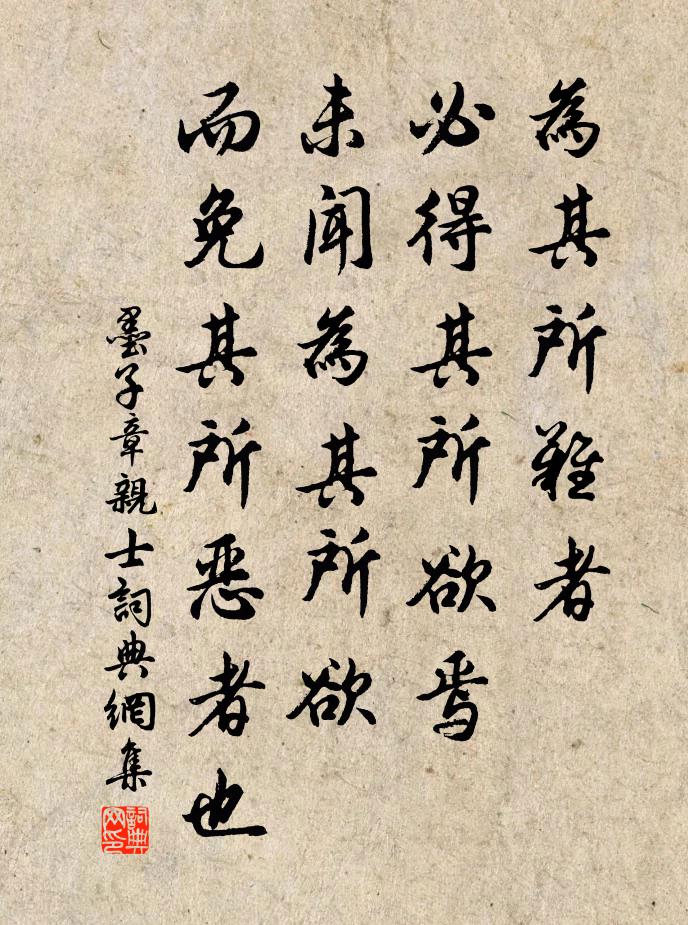 為其所難者
必得其所欲焉
未聞為其所欲
而免其所惡者也
墨子章親士詞典網集
詞典
网印